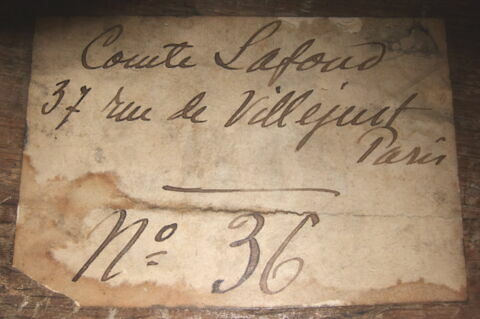 Comte Lafond
37 rue de Villejust
Paris
Nº 36